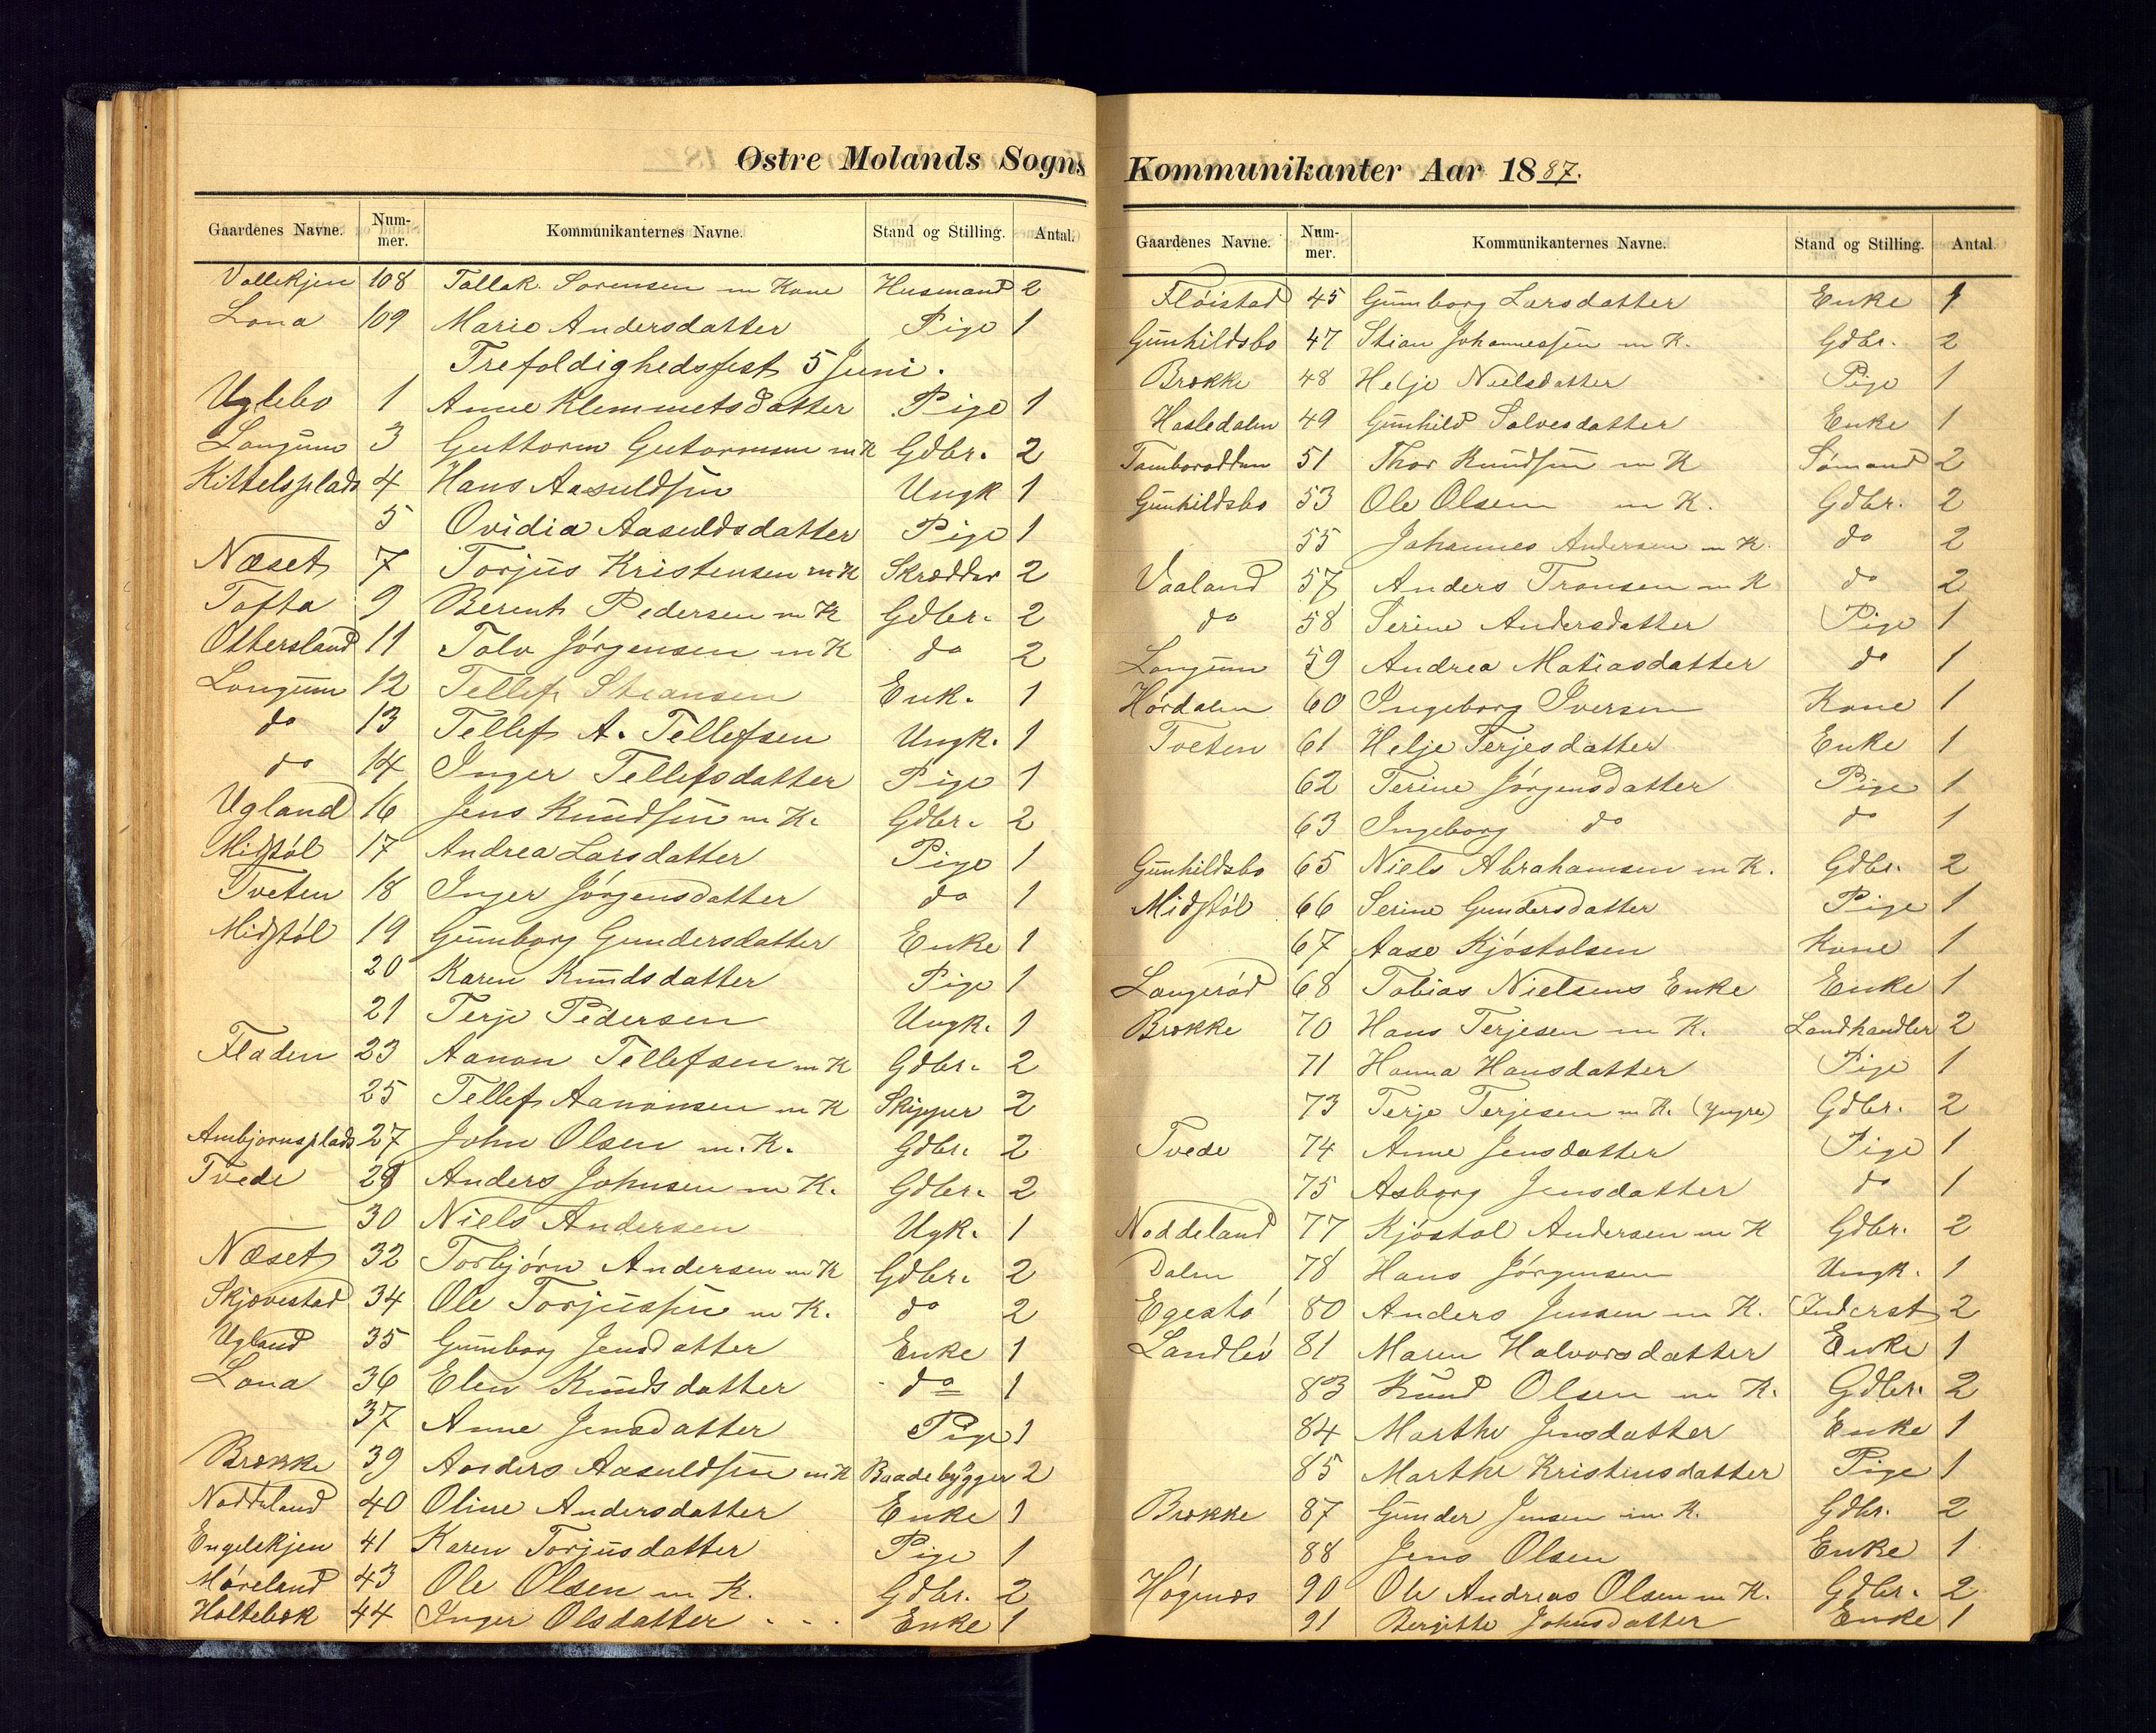 Østre Molands Sogns
Gaardenes Navne. Num-mer. Kommunikanternes Navne. Stand og Stilling. Antal.
Vollekjen 108 Tallak Sorensen m Kone Husmand 2
Lona 109 Marie Andersdatter Pige 1
Trefoldighedsfest 5 Juni.
Uglebo 1 Anne Klemmetsdatter Pige 1
Langum 3 Guttorm Gutormsen m K Gdbr. 2
Kittelsplads 4 Hans Aasuldsen Ungk 1
5 Ovidia Aasuldsdatter Pige 1
Næset 7 Torjus Kristensen m K Skrædder 2
Tofta 9 Berent Pedersen m K Gdbr. 2
Ottersland 11 Tolv Jørgensen m K do 2
Longum 12 Tellef Stiansen Enk. 1
do 13 Tellef A. Tellefsen Ungk. 1
do 14 Inger Tellefsdatter Pige 1
Ugland 16 Jens Knudsen m K. Gdbr. 2
Midstøl 17 Andrea Larsdatter Pige 1
Tveten 18 Inger Jørgensdatter do 1
Midstøl 19 Gunborg Gundersdatter Enke 1
20 Karen Knudsdatter Pige 1
21 Terje Pedersen Ungk. 1
Fladen 23 Aanon Tellefsen m K Gdbr. 2
25 Tellef Aanonsen m K Skipper 2
Ambjornsplads 27 John Olsen m. K. Gdbr. 2
Tvede 29 Anders Johnsen m K. Gdbr. 2
30 Niels Andersen Ugk. 1
Næset 32 Torbjørn Andersen m K Gdbr. 2
Skjævestad 34 Ole Torjussen m K. do 2
Ugland 35 Gunborg Jensdatter Enke 1
Lona 36 Elen Knudsdatter do 1
37 Anne Jensdatter Pige 1
Brække 39 Anders Aasuldsen m K Baadebygger 2
Noddeland 40 Oline Andersdatter Enke 1
Engelskjen 41 Karen Torjusdatter Pige 1
Møreland 43 Ole Olsen m K. Gdbr. 2
Holtebæk 44 Inger Olsdatter Enke 1
Kommunikanter Aar 1887.
Gaardenes Navne. Num-mer. Kommunikanternes Navne. Stand og Stilling. Antal.
Fløistad 45 Gunborg Larsdatter Enke 1
Gunhildsbo 47 Stian Johannessen m K. Gdbr. 2
Brække 48 Helje Nielsdatter Pige 1
Hasledalen 49 Gunhild Salvesdatter Enke 1
51 Thor Knudsen m K Sømand 2
Gunhildsbo 53 Ole Olsen m K. Gdbr. 2
55 Johannes Andersen m K. do 2
Vaaland 57 Anders Tronsen m K do 2
do 58 Serine Andersdatter Pige 1
Langum 59 Andrea Matiasdatter do 1
Hørdalen 60 Ingeborg Iversen Kone 1
Tveten 61 Helje Terjesdatter Enke 1
62 Terine Jørgensdatter Pige 1
63 Ingeborg do do 1
Gunhildsbo 65 Niels Abrahamsen m K. Gdbr. 2
Midstøl 66 Serine Gundersdatter Pige 1
67 Aase Kjøstolsen Kone 1
Langerød 68 Tobias Nielsens Enke Enke 1
Brække 70 Hans Terjesen m K. Landhandler 2
71 Hanna Hansdatter Pige 1
73 Terje Terjesen m K. (yngre) Gdbr. 2
Tvede 74 Anne Jensdatter Pige 1
75 Asborg Jensdatter do 1
Noddeland 77 Kjøstol Andersen m K Gdbr. 2
Dalen 78 Hans Jørgensen Ungk. 1
Egestø 80 Anders Jensen m K. Inderst 2
Landløv 81 Maren Halvorsdatter Enke 1
83 Knud Olsen m K. Gdbr. 2
84 Marthe Jensdatter Enke 1
85 Marthe Kristensdatter Pige 1
Brække 87 Gunder Jensen m K. Gdbr. 2
88 Jens Olsen Enke 1
Høgenæs 90 Ole Andreas Olsen m K. Gdbr. 2
91 Bergitte Johnsdatter Enke 1